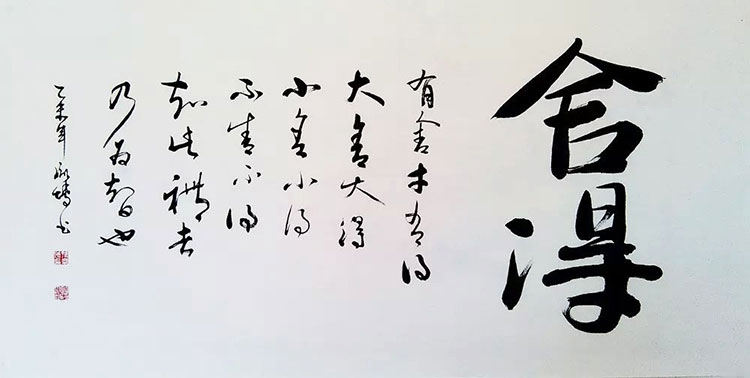 舍得
有舍才有得
大舍大得
小舍小得
不舍不得
知此禮者
乃为智也
乙未年书